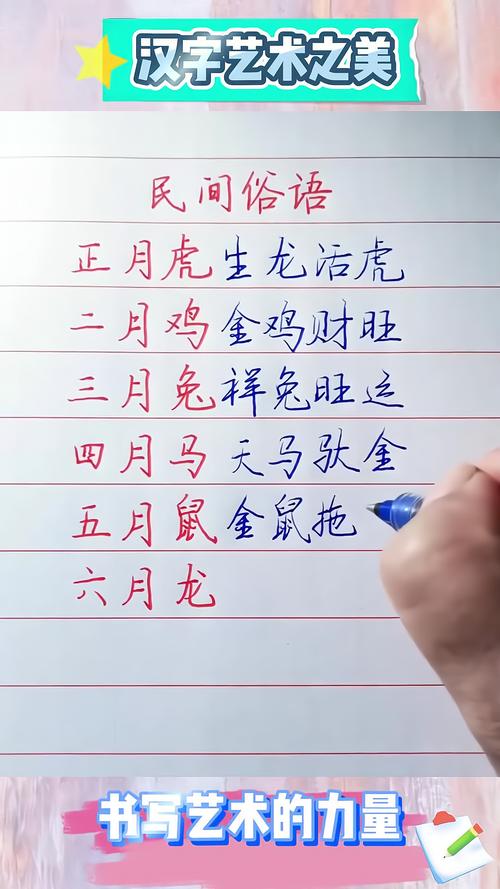 汉字艺术之美
民间俗语
正月虎生龙活虎
二月鸡金鸡财旺
三月兔祥兔旺运
四月马天马驮金
五月鼠金鼠拖
六月龙
书写艺术的力量